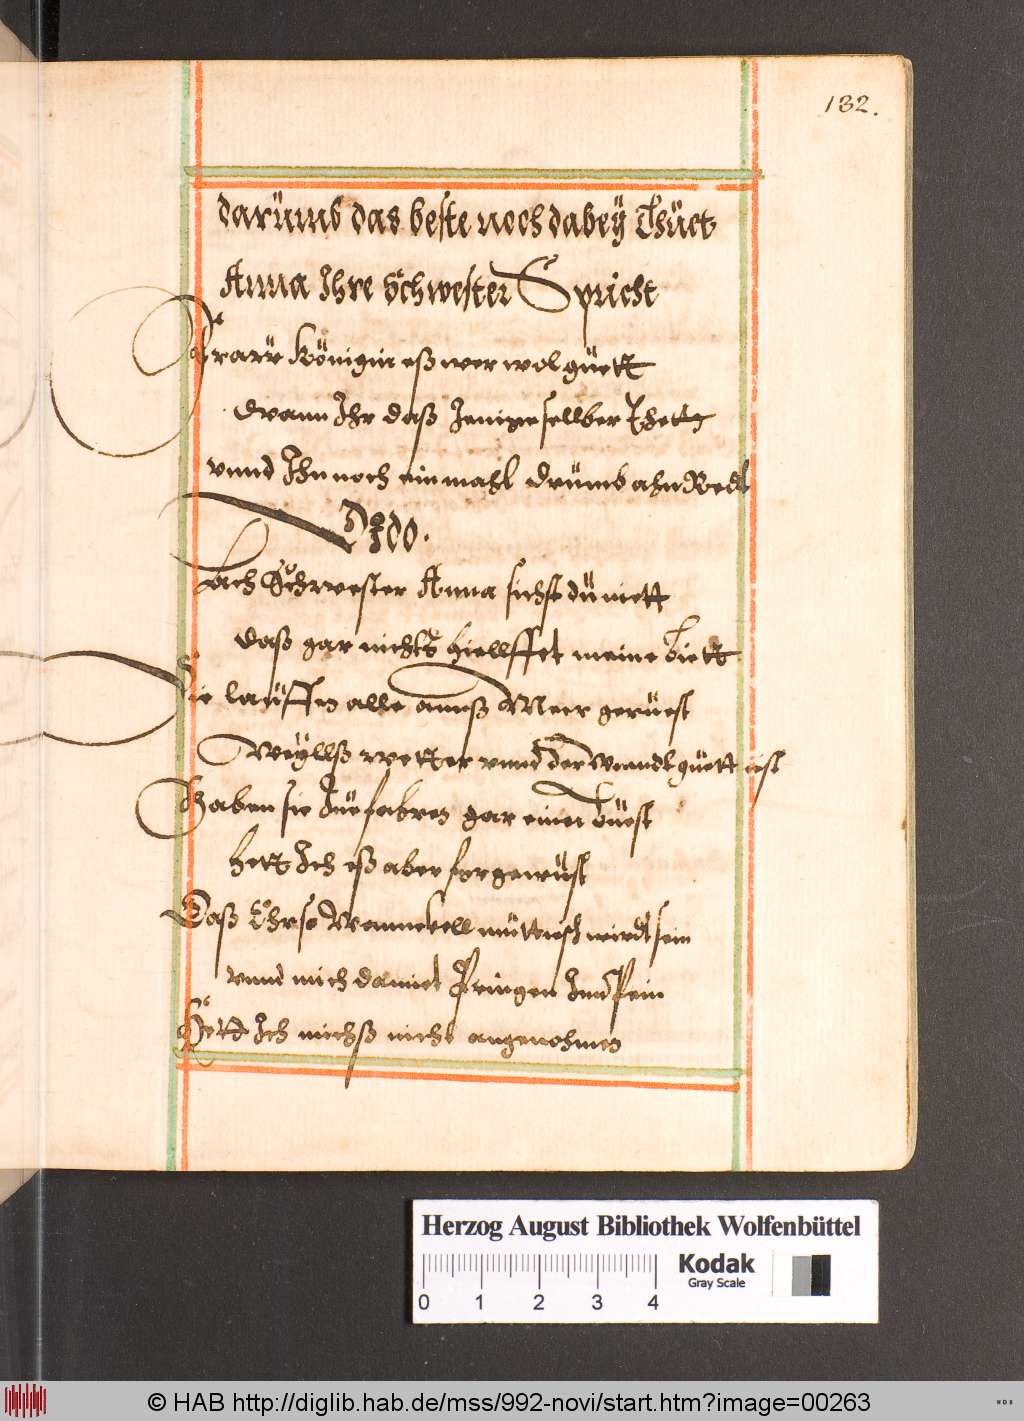 132.
darümb das beste noch dabeÿ Thüet
Anna Ihre Schwester Spricht
Fraw Königin eß wer wol güett
wann Ihr daß Jenige sellber thett
vnnd Ihn noch ein mahl drümb ahn Redt
Dido.
Ach Schwester Anna sichst dü niett
daß gar nichts hiellffet meine biett
Sie lauffen alle anß Meer gerüest
Weÿllß wetter vnnd der Wiendt güett ist
Haben sie Zue fahren gar einen Lüest
hett Ich eß aber for gewüst
Daß Ehr so Wannckell müttisch wirdt sein
vnnd mich damiet Bringen Inn Pein
Hett Ich michß nicht angenohmen
Herzog August Bibliothek Wolfenbüttel
Kodak
Gray Scale
0 1 2 3 4
© HAB http://diglib.hab.de/mss/992-novi/start.htm?image=00263